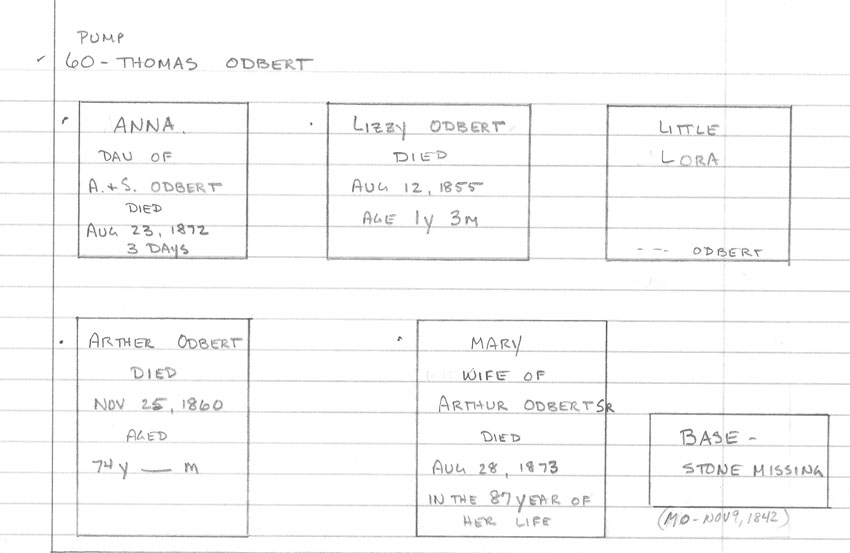 PUMP
60 - THOMAS ODBERT
ANNA.
DAU OF
A. + S. ODBERT
DIED
AUG 23, 1872
3 DAYS
LIZZY ODBERT
DIED
AUG 12, 1855
AGE 1y 3m
LITTLE
LORA
--- ODBERT
ARTHER ODBERT
DIED
NOV 25, 1860
AGED
74y — m
MARY
WIFE OF
ARTHUR ODBERT SR
DIED
AUG 28, 1873
IN THE 87 YEAR OF
HER LIFE
BASE -
STONE MISSING
(MO - NOV 9, 1842)